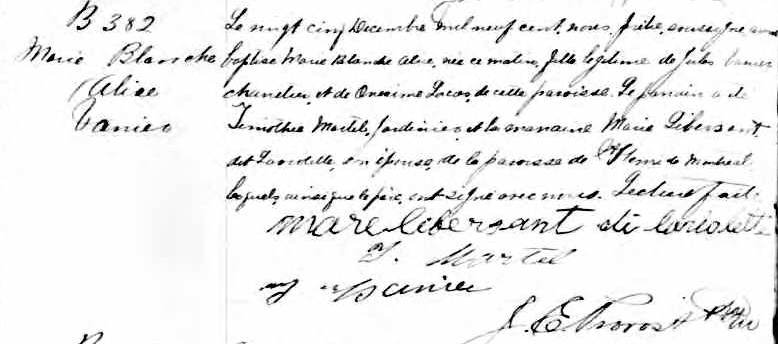 B 382
Marie Blanche
Alice
Vanier
Le vingt cinq Decembre mil neuf cent, nous, Prêtre, soussigné, avons
baptisé Marie Blanche Alice, née ce matin, fille légitime de Jules Vanier
chandler, et de Onesime Lucas, de cette paroisse. Le parrain a été
Timothée Martel, Jardinier, et la marraine Marie Libersant
dit Lariolette, son épouse, de la paroisse de St de Montreal
lesquels, ainsi que le père, ont signé avec nous. Lecture faite
mare libersant di lariolette
T. Martel
Vanier
J. E. Provost Ptre